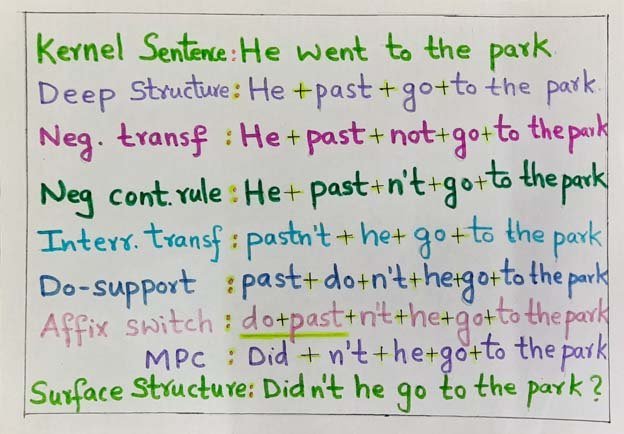 Kernel Sentence: He went to the park.
Deep Structure: He+past+go+to the park.
Neg. transf : He+past+not+go+to the park
Neg cont. rule: He+past+n't+go+to the park
Interr. transf : pastn't+he+go+to the park
Do-support : past+do+n't+he+go+to the park
Affix switch : do+past+n't+he+go+to the park
MPC : Did+n't+he+go+to the park
Surface Structure: Didn't he go to the park?